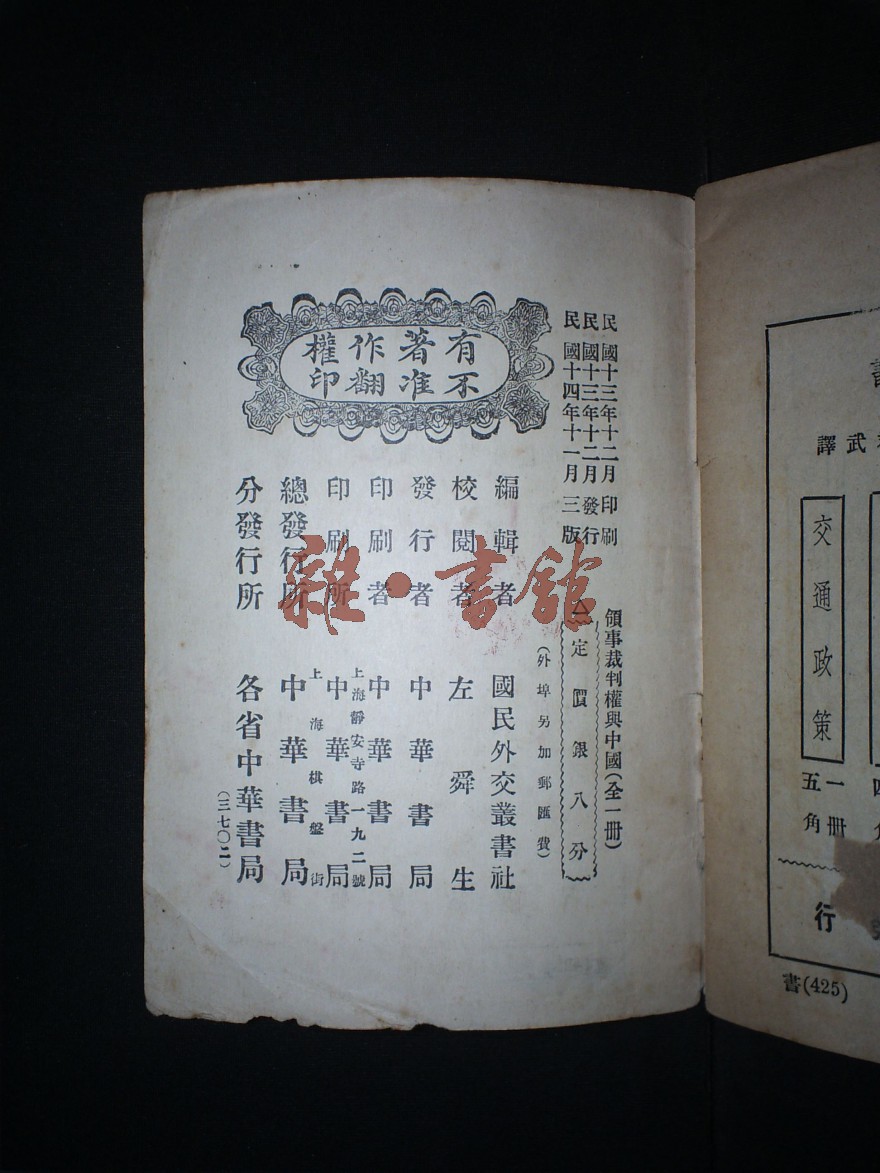 民國十三年十二月印刷
民國十三年十二月發行
民國十四年十一月三版
領事裁判權與中國(全一冊)
定價銀八分
(外埠另加郵匯費)
有著作權
不准翻印
編輯者 國民外交叢書社
校閱者 左舜生
發行者 中華書局
印刷者 中華書局
上海靜安寺路一九二號
印刷所 中華書局
上海棋盤街
總發行所 中華書局
分發行所 各省中華書局
(三七〇二)
雜·書館
武譯
交通政策
一冊
五角
行
書(425)